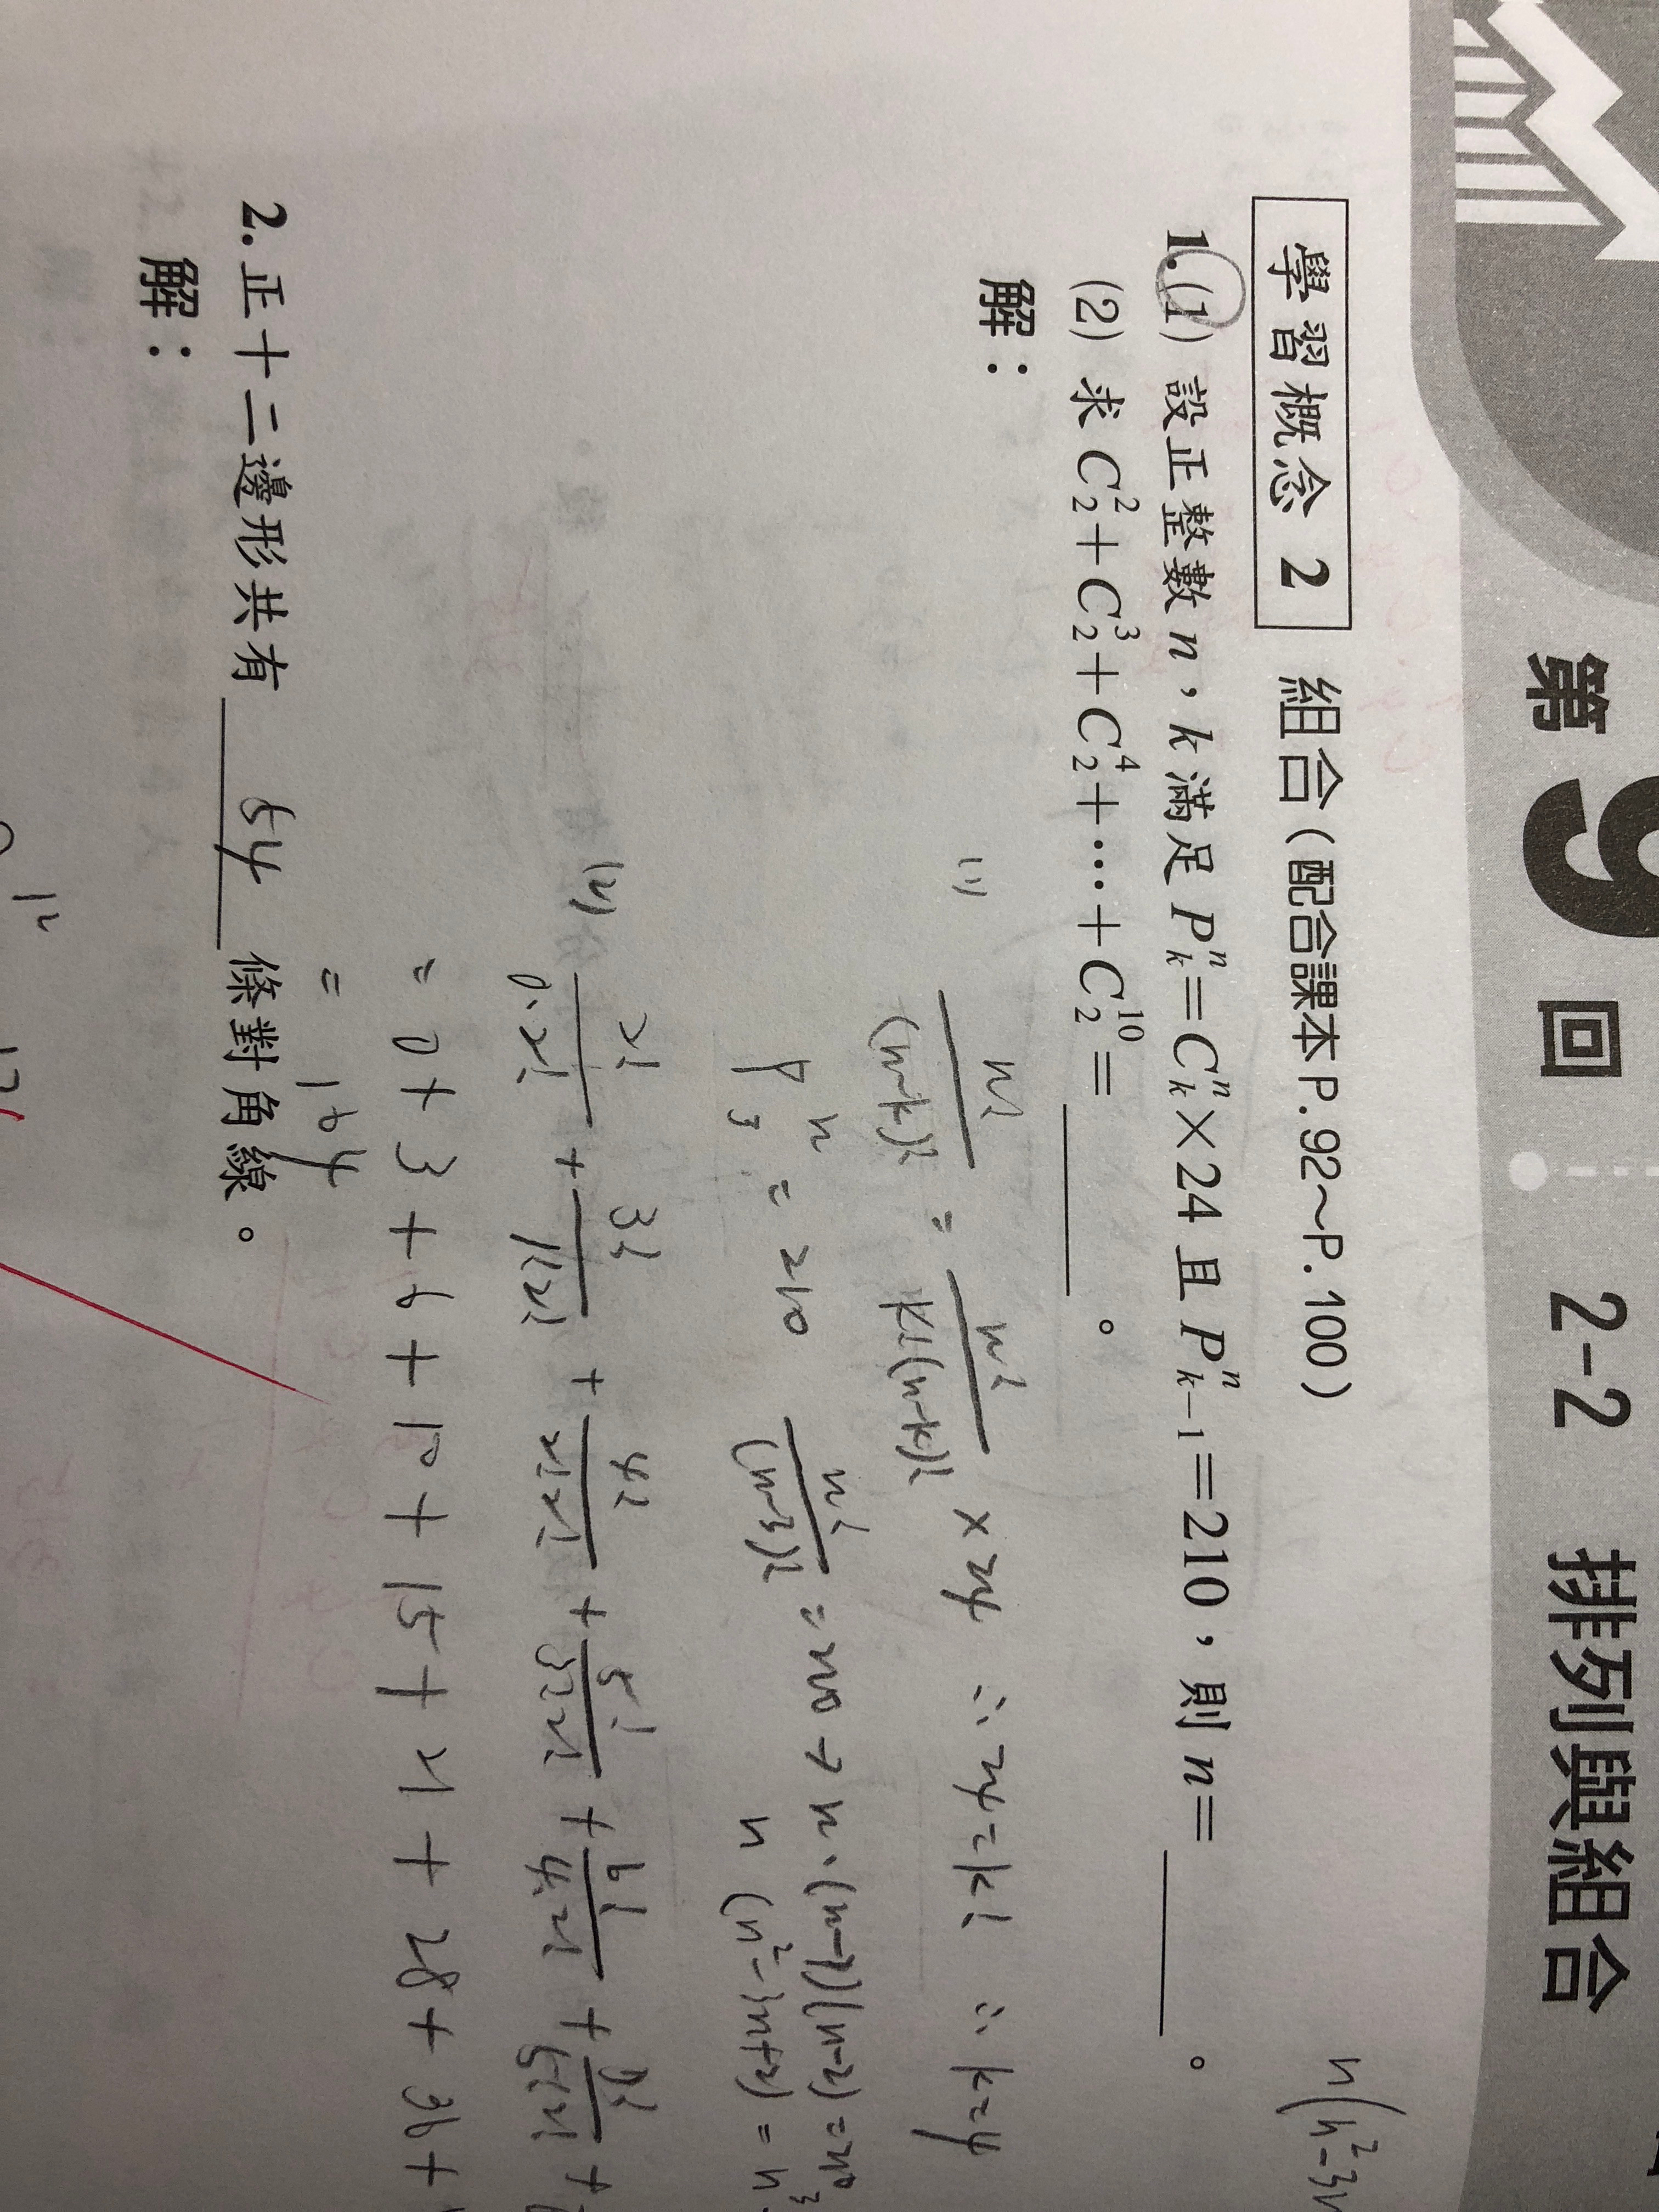 第9回 2-2 排列與組合
n(n²-3n
學習概念 2 組合(配合課本P.92~P.100)
1.(1) 設正整數n,k滿足Pⁿₖ=Cⁿₖ×24且Pⁿₖ₋₁=210,則n=______。
(2) 求C²₂+C³₂+C⁴₂+⋯+C¹⁰₂=______。
解:
(1) n!/(n-k)! = n!/k!(n-k)! × 24 ∴ 24=k! ∴ k=4
Pⁿ₃ = 210 n!/(n-3)! = 210 → n·(n-1)(n-2)=210
n(n²-3n+2) = n³
(2) 2!/0!2! + 3!/1!2! + 4!/2!2! + 5!/3!2! + 6!/4!2! + 7!/5!2! +
= 0+3+6+10+15+21+28+36+
= 164
2.正十二邊形共有 54 條對角線。
解:
12